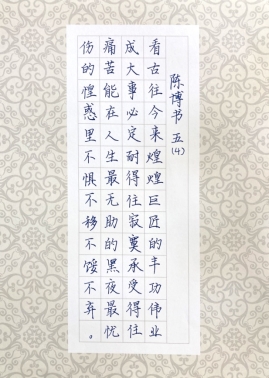 陈博书 五(4)
看古往今来煌煌巨匠的丰功伟业
成大事必定耐得住寂寞承受得住
痛苦能在人生最无助的黑夜最忧
伤的惶惑里不惧不移不馁不弃。